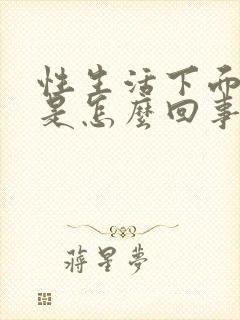 性生活下面
是怎麼回事
蔣星夢